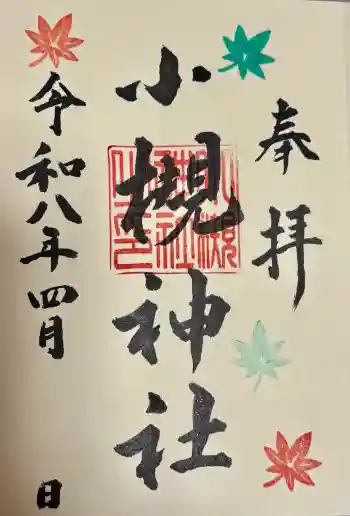 奉拝
小槻神社
小槻
神社
之印
令和八年四月 日